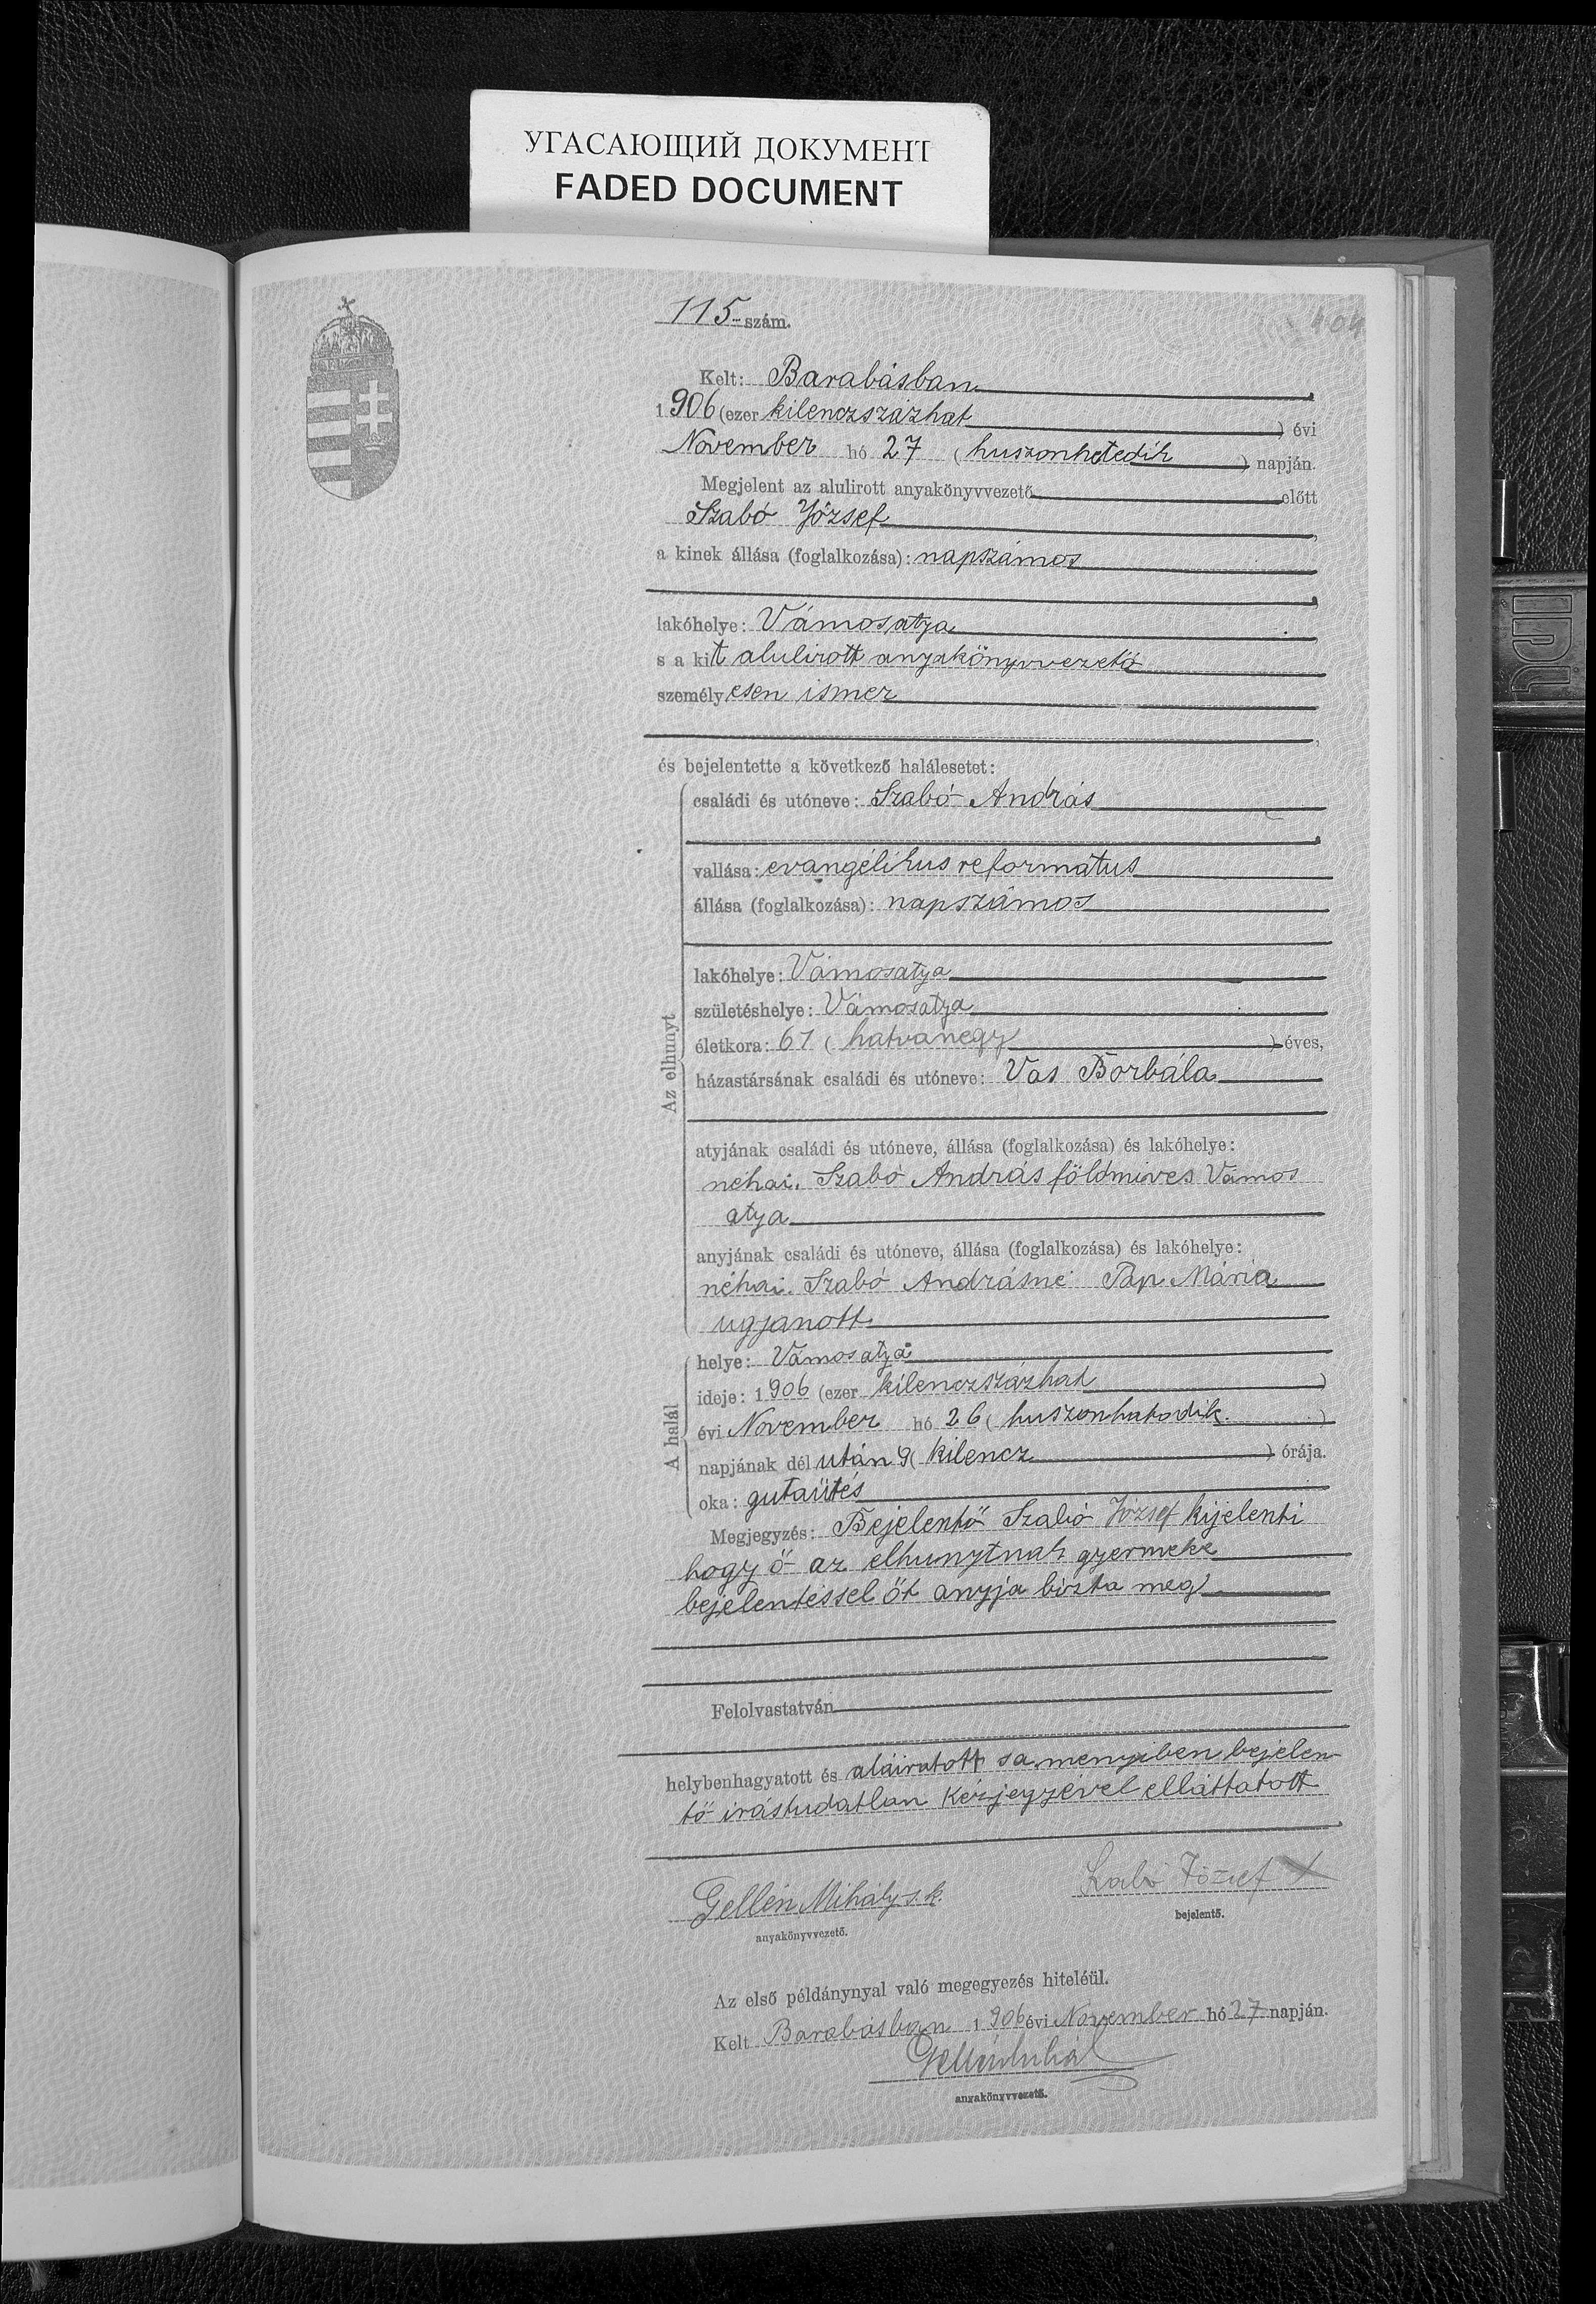 УГАСАЮЩИЙ ДОКУМЕНТ
FADED DOCUMENT
115 szám.
404
Kelt: Barabásban
1906 (ezer kilenczszázhat) évi
November hó 27 (huszonhetedik) napján.
Megjelent az alulirott anyakönyvvezető előtt
Szabó József,
a kinek állása (foglalkozása): napszámos
lakóhelye: Vámosatya
s a kit alulirott anyakönyvvezető
személyesen ismer
és bejelentette a következő halálesetet:
Az elhunyt
családi és utóneve: Szabó András
vallása: evangélikus reformatus
állása (foglalkozása): napszámos
lakóhelye: Vámosatya
születéshelye: Vámosatya
életkora: 61 (hatvanegy) éves,
házastársának családi és utóneve: Vas Borbála
atyjának családi és utóneve, állása (foglalkozása) és lakóhelye:
néhai. Szabó András földmives Vámos
atya
anyjának családi és utóneve, állása (foglalkozása) és lakóhelye:
néhai. Szabó Andrásné Pap Mária
ugyanott
A halál
helye: Vámosatya
ideje: 1906 (ezer kilenczszázhat)
évi November hó 26 (huszonhatodik.)
napjának dél után 9 (kilencz) órája.
oka: gutaütés
Megjegyzés: Bejelentő Szabó József kijelenti
hogy ő az elhunytnak gyermeke
bejelentéssel őt anyja bizta meg
Felolvastatván
helybenhagyatott és aláiratott s a menyiben bejelen
tő irástudatlan kézjegyével elláttatott
Gellén Mihály s. k.
anyakönyvvezető.
Szabó József X
bejelentő.
Az első példánynyal való megegyezés hiteléül.
Kelt Barabásban 1906 évi November hó 27 napján.
Gellén Mihál
anyakönyvvezető.